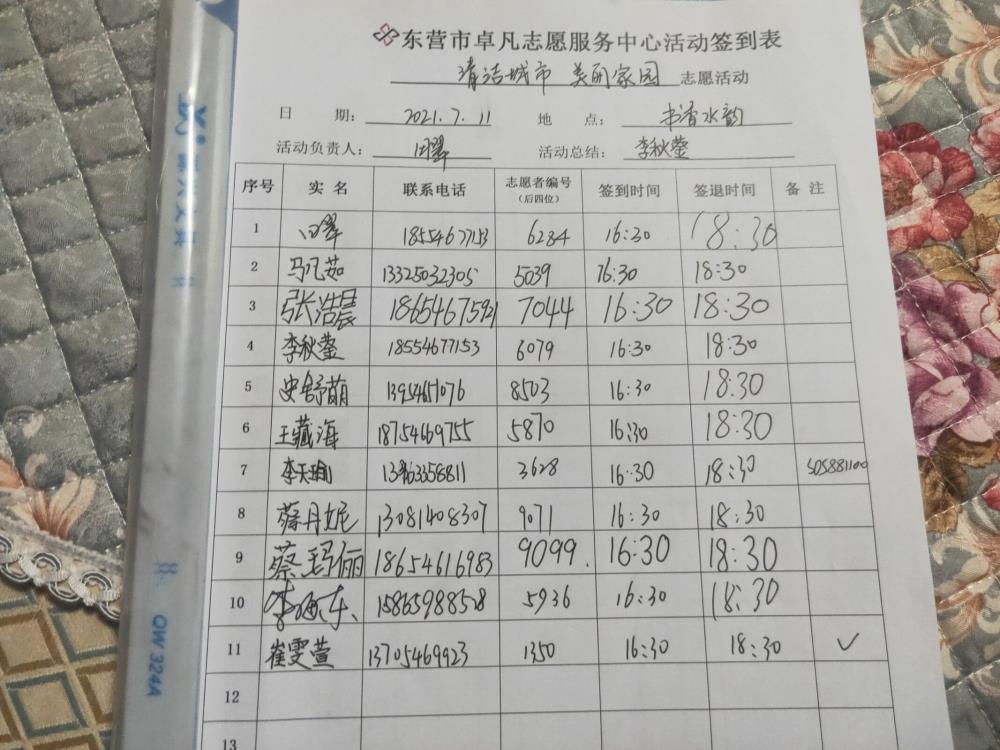 东营市卓凡志愿服务中心活动签到表
清洁城市 美丽家园 志愿活动
日 期： 2021.7.11 地 点： 书香水韵
活动负责人： 活动总结： 李秋蓥
序号 实名 联系电话 志愿者编号（后四位） 签到时间 签退时间 备注
1 18554677153 6284 16:30 18:30
2 马凡茹 13325032305 5039 16:30 18:30
3 张浩晨 18654675921 7044 16:30 18:30
4 李秋蓥 18554677153 6079 16:30 18:30
5 史舒萌 13954651076 8503 16:30 18:30
6 王藏海 18754669755 5870 16:30 18:30
7 3628 16:30 18:30 505881100
8 蔡丹妮 13081408307 9071 16:30 18:30
9 蔡玛俪 18654616983 9099 16:30 18:30
10 15865988528 5936 16:30 18:30
11 崔雯萱 13705469923 1350 16:30 18:30 ✓
12
13
QW 324A